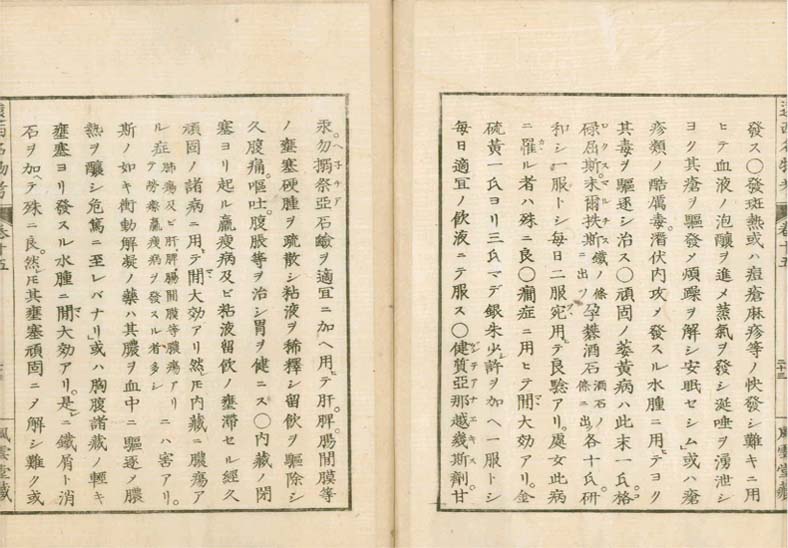 發ス〇發斑熱或ハ痘瘡麻疹等ノ快發シ難キニ用
ヒテ血液ノ泡釀ヲ進メ蒸氣ヲ發シ涎唾ヲ湧泄シ
ヨク其瘡ヲ驅發メ煩躁ヲ解シ安眠セシム」或ハ瘡
疹類ノ酷厲毒潛伏内攻メ發スル水腫ニ用テヨク
其毒ヲ驅逐シ治ス〇頑固ノ萎黄病ハ此末一氏格
碌屈斯末爾扶斯鐵ノ條ニ出ツ孕礬酒石酒石ノ條ニ出ス各十氏研
和シ一服トシ毎日二服宛用テ良驗アリ處女此病
ニ罹ル者ハ殊ニ良〇癇症ニ用ヒテ間大効アリ金
硫黄一氏ヨリ三氏マデ銀朱少許ヲ加ヘ一服トシ
毎日適宜ノ飲液ニテ服ス〇健質亞那越幾斯劑甘
汞勿搦祭亞石鹼ヲ適宜ニ加ヘ用テ肝脾腸間膜等
ノ壅塞硬腫ヲ疏散シ粘液ヲ稀釋シ留飲ヲ驅除シ
久腹痛嘔吐腹脹等ヲ治シ胃ヲ健ニス〇内藏ノ閉
塞ヨリ起ル羸瘦病及ビ粘液留飲ノ壅滯セル經久
頑固ノ諸病ニ用テ間大効アリ然𪜈内藏ニ膿瘍ア
ル症肺瘍及ビ肝脾腸間膜等膿瘍アリテ勞瘵羸瘦病ヲ發スル者多シニハ害アリ
斯ノ如キ衝動解凝ノ藥ハ其膿ヲ血中ニ驅逐メ膿
熱ヲ釀シ危篤ニ至レバナリ」或ハ胸腹諸藏ノ輕キ
壅塞ヨリ發スル水腫ニ間大効アリ是ニ鐵屑ト消
石ヲ加ヘテ殊ニ良然𪜈其壅塞頑固ニメ解シ難ク或
卷十五
二十三
風雲堂藏
遠西名物考
卷十五
風雲堂藏